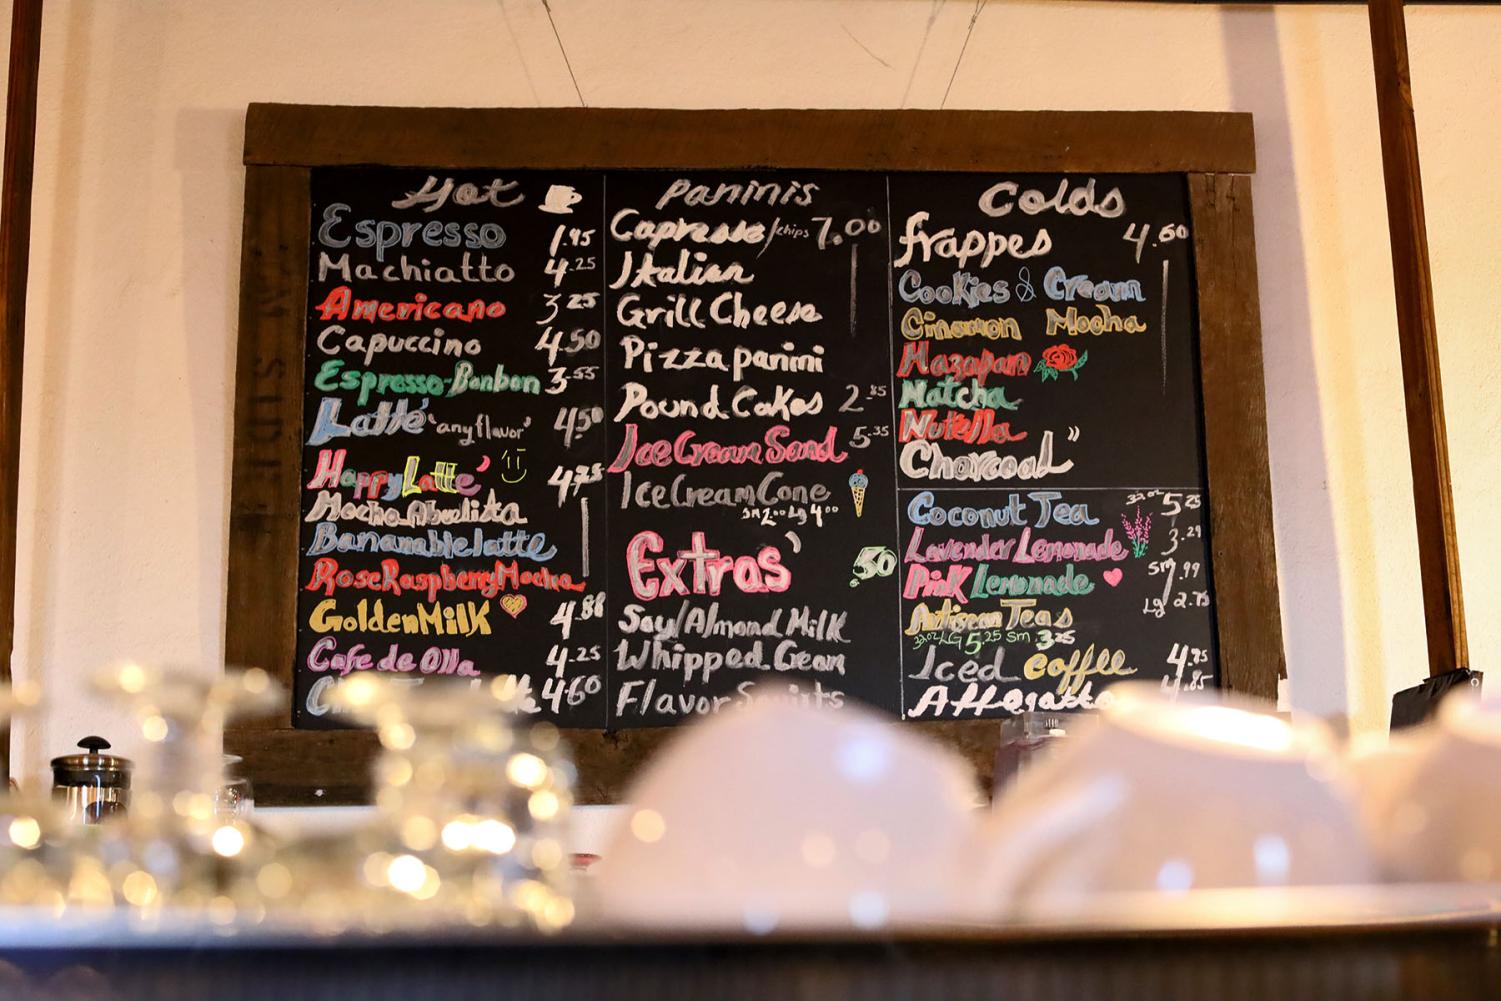 Hot
Espresso 1.95
Machiatto 4.25
Americano 3.25
Capuccino 4.50
Espresso Bonbon 3.55
Latte 'any flavor' 4.50
Happy Latte' 4.75
Mocha Abuelita
Bananablelatte
Rose Raspberry Mocha
Golden Milk 4.88
Cafe de Olla 4.25
4.60
Paninis
Caprease/chips 7.00
Italian
Grill Cheese
Pizza panini
Pound Cakes 2.85
Ice Cream Sand 5.35
Ice Cream Cone
Sm 2.00 Lg 4.00
Extras' .50
Soy/Almond Milk
Whipped Cream
Flavor
Colds
frappes 4.60
Cookies & Cream
Cinamon Mocha
Mazapan
Matcha
Nutella
Charcoal"
Coconut Tea 32oz 5.25
Lavender Lemonade 3.29
Pink Lemonade Sm 1.99
Lg 2.75
Artisean Teas
32oz LG 5.25 Sm .3.25
Iced coffee 4.75
Affogatto 4.85